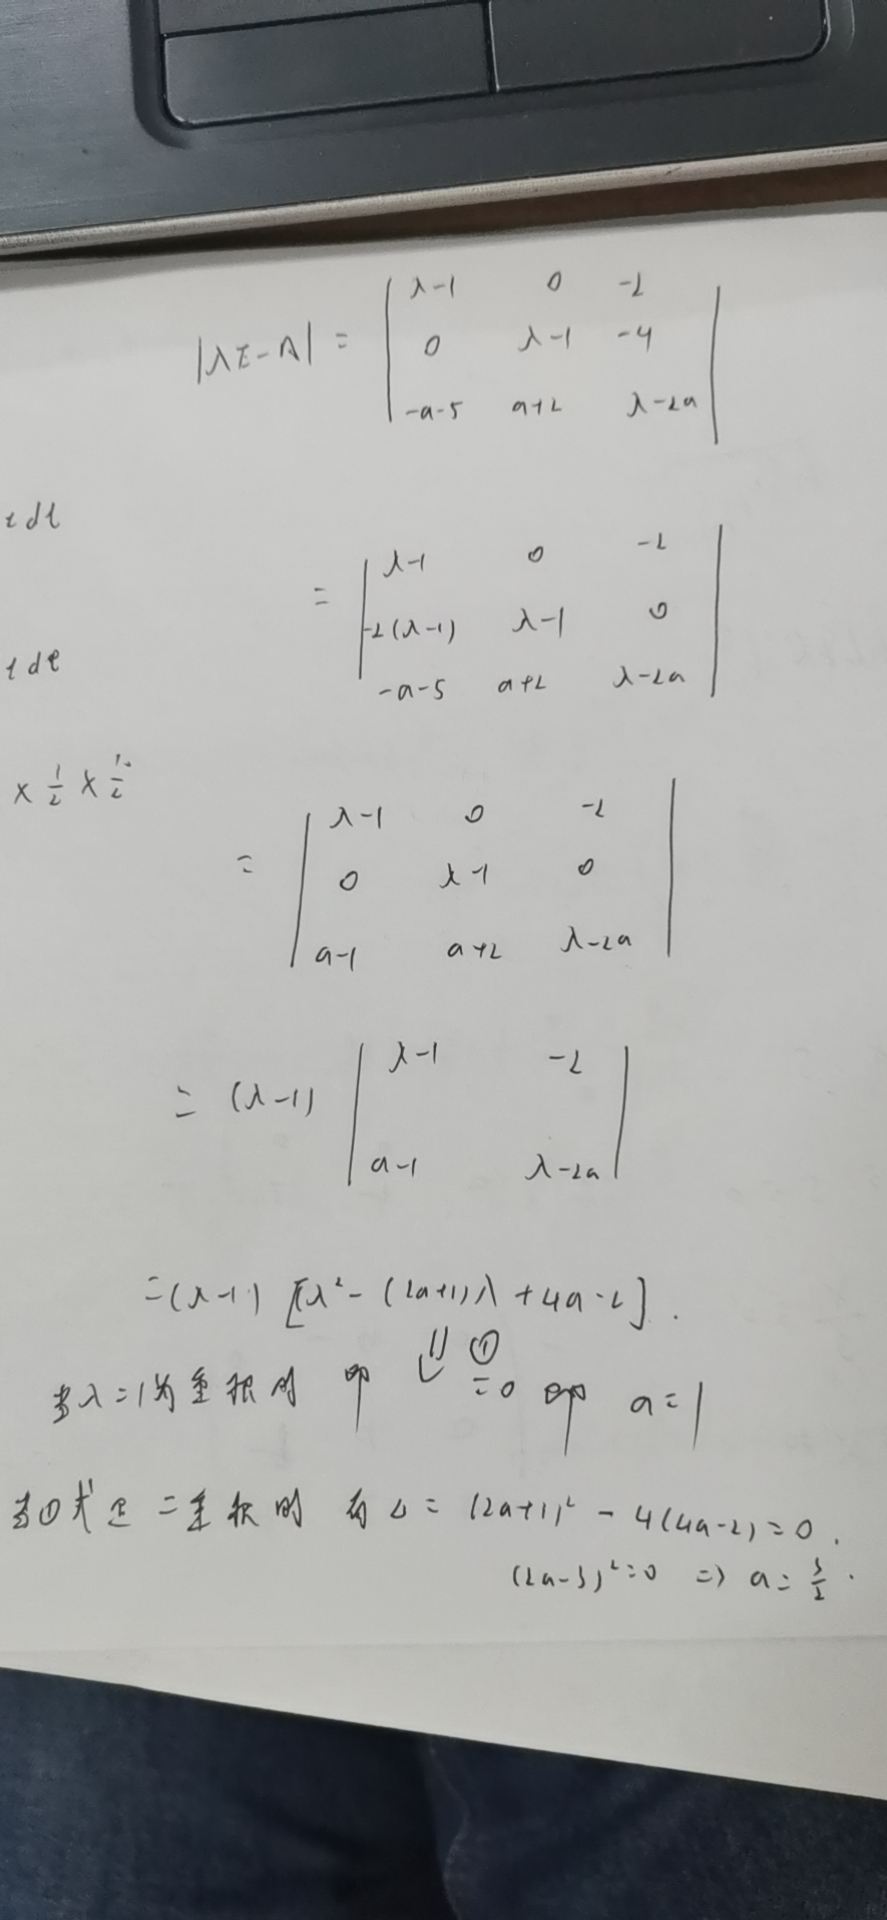 |λE-A| = | λ-1 0 -2 |
| 0 λ-1 -4 |
| -a-5 a+2 λ-2a |
tdt
= | λ-1 0 -2 |
| -2(λ-1) λ-1 0 |
| -a-5 a+2 λ-2a |
× 1/2 × 1/2
= | λ-1 0 -2 |
| 0 λ-1 0 |
| a-1 a+2 λ-2a |
= (λ-1) | λ-1 -2 |
| a-1 λ-2a |
=(λ-1) [λ²-(2a+1)λ+4a-2].
当λ=1为重根时 即 ① =0 即 a=1
当①式 二重根时 有 Δ= (2a+1)² - 4(4a-2)=0.
(2a-3)²=0 => a= 3/2.